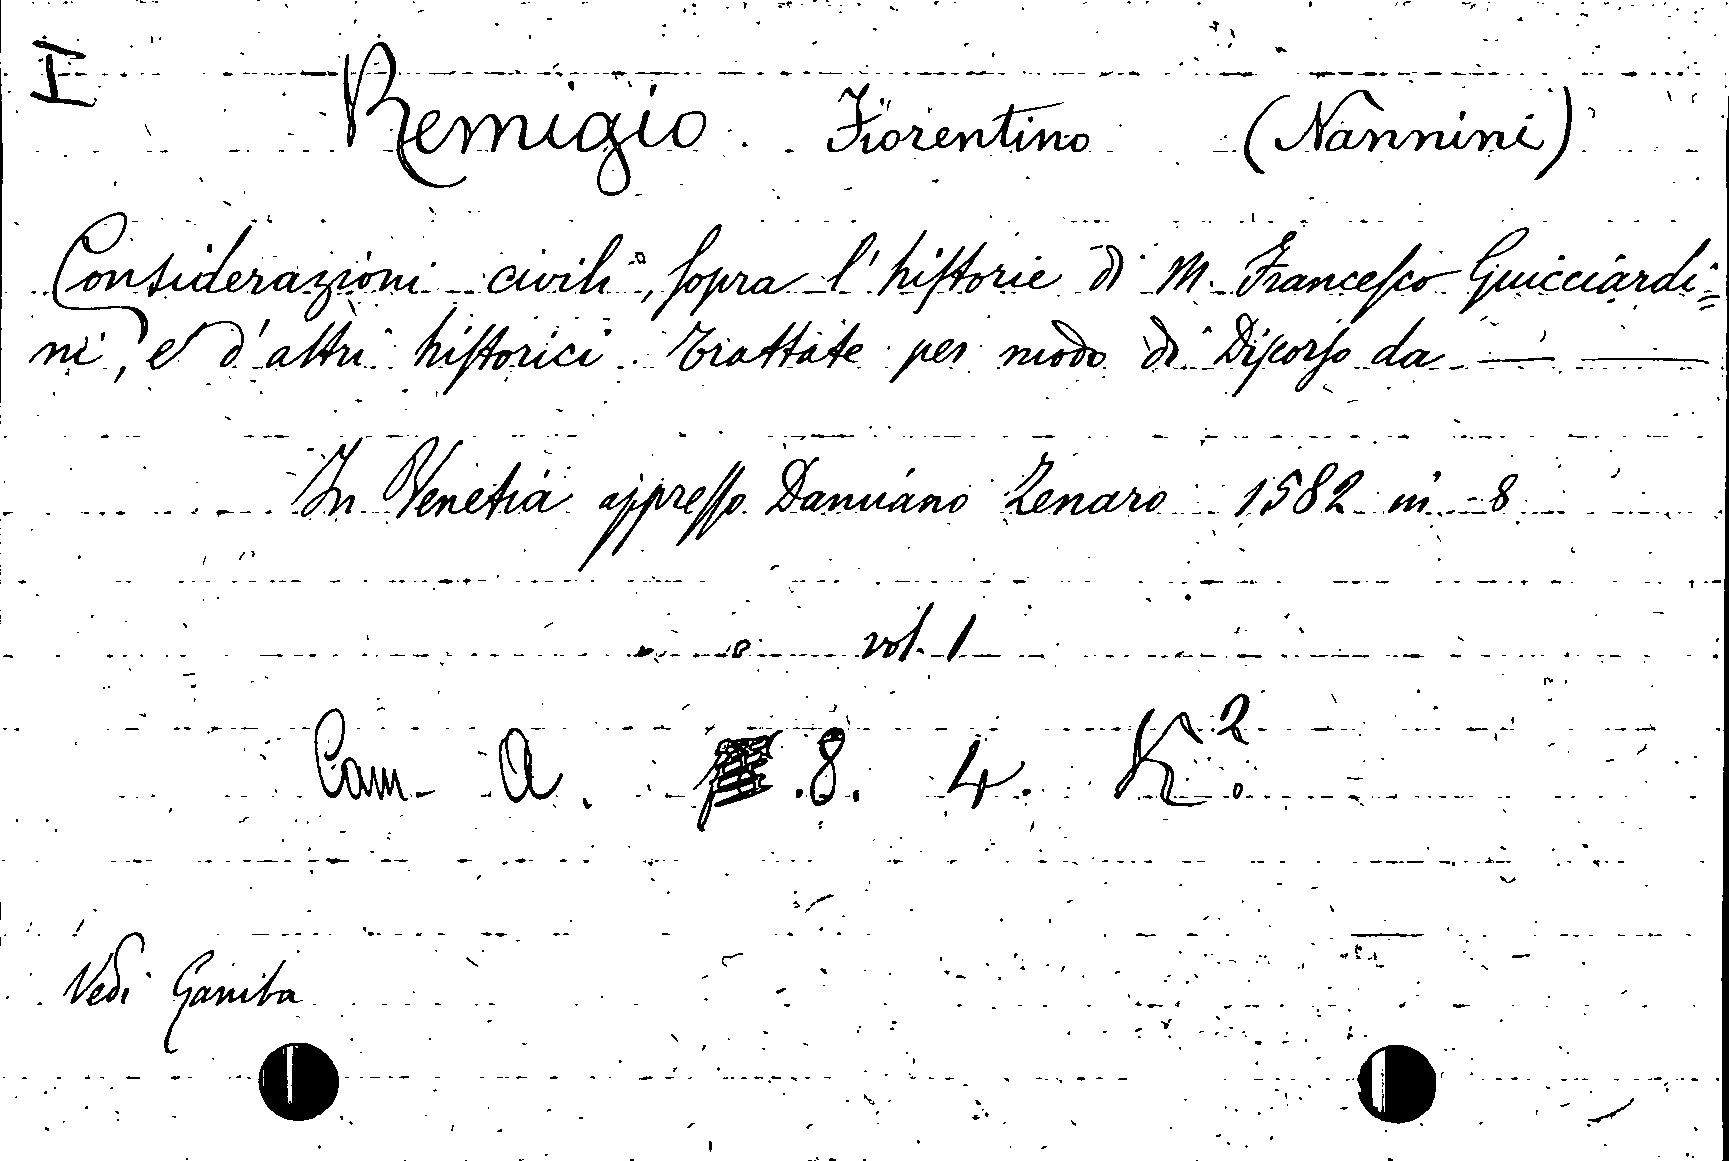 H
Remigio Fiorentino (Nannini)
Considerazioni civili, sopra l'historie di M. Francesco Guicciardi=
ni, e d'altri historici. Trattate per modo di Discorso da — —
In Venetia appresso Damiano Zenaro 1582 in 8
vol. 1
Cam. A. 8. 4. K².
Vedi Gamba